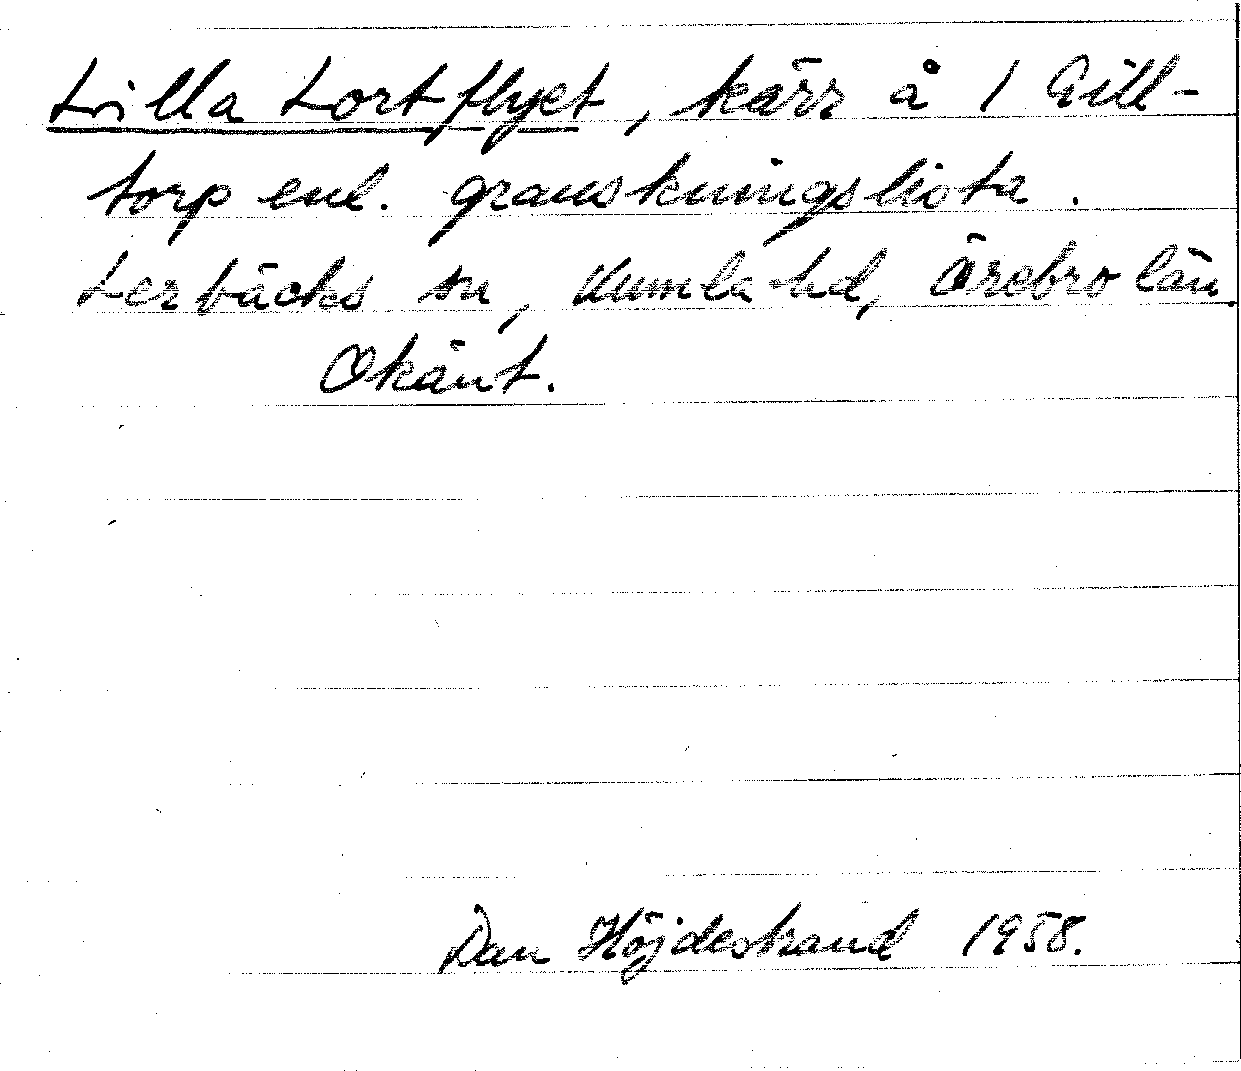 Lilla Lortflyet, kärr å 1 Gill-
torp enl. granskningslista.
Lerbäcks sn, Kumla hd, Örebro län.
Okänt.
Dan Höjdestrand 1958.